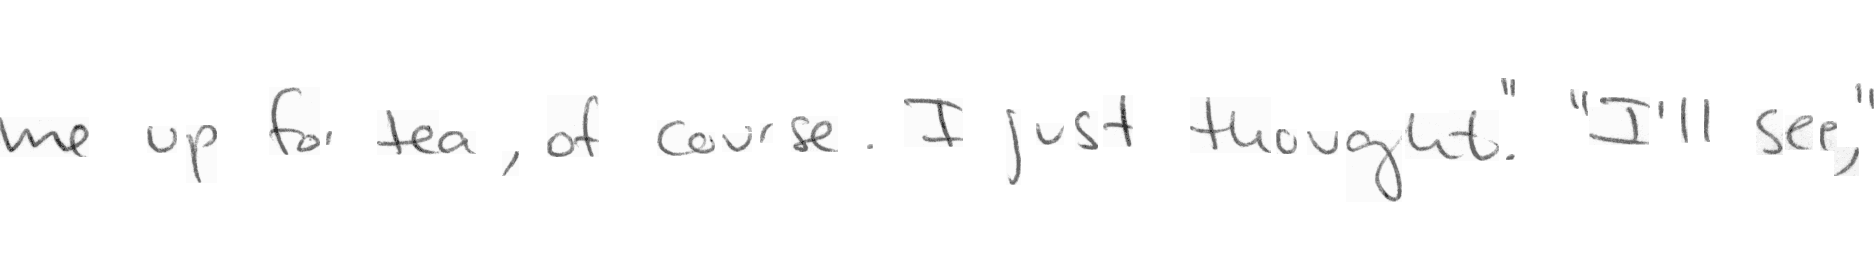 me up for tea, of course. I just thought." "I'll see,"